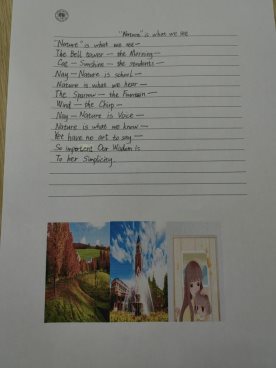 "Nature" is what we see
"Nature" is what we see—
The Bell tower — the Morning—
Cat — Sunshine — the students—
Nay — Nature is school—
Nature is what we hear—
The Sparrow — the Fountain—
Wind — the Chirp—
Nay — Nature is Voice—
Nature is what we know—
Yet have no art to say—
So impotent Our Wisdom is
To her Simplicity.